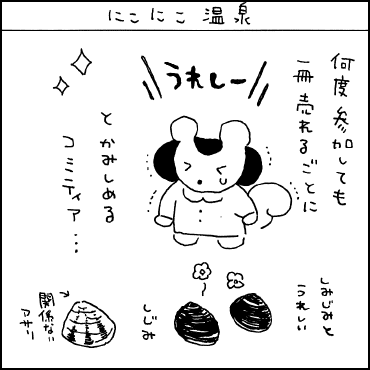 にこにこ温泉
何度参加しても
一冊売れるごとに
うれしー
とかみしめる
コミティア…
しみじみと
うれしい
しじみ
関係ない
アサリ